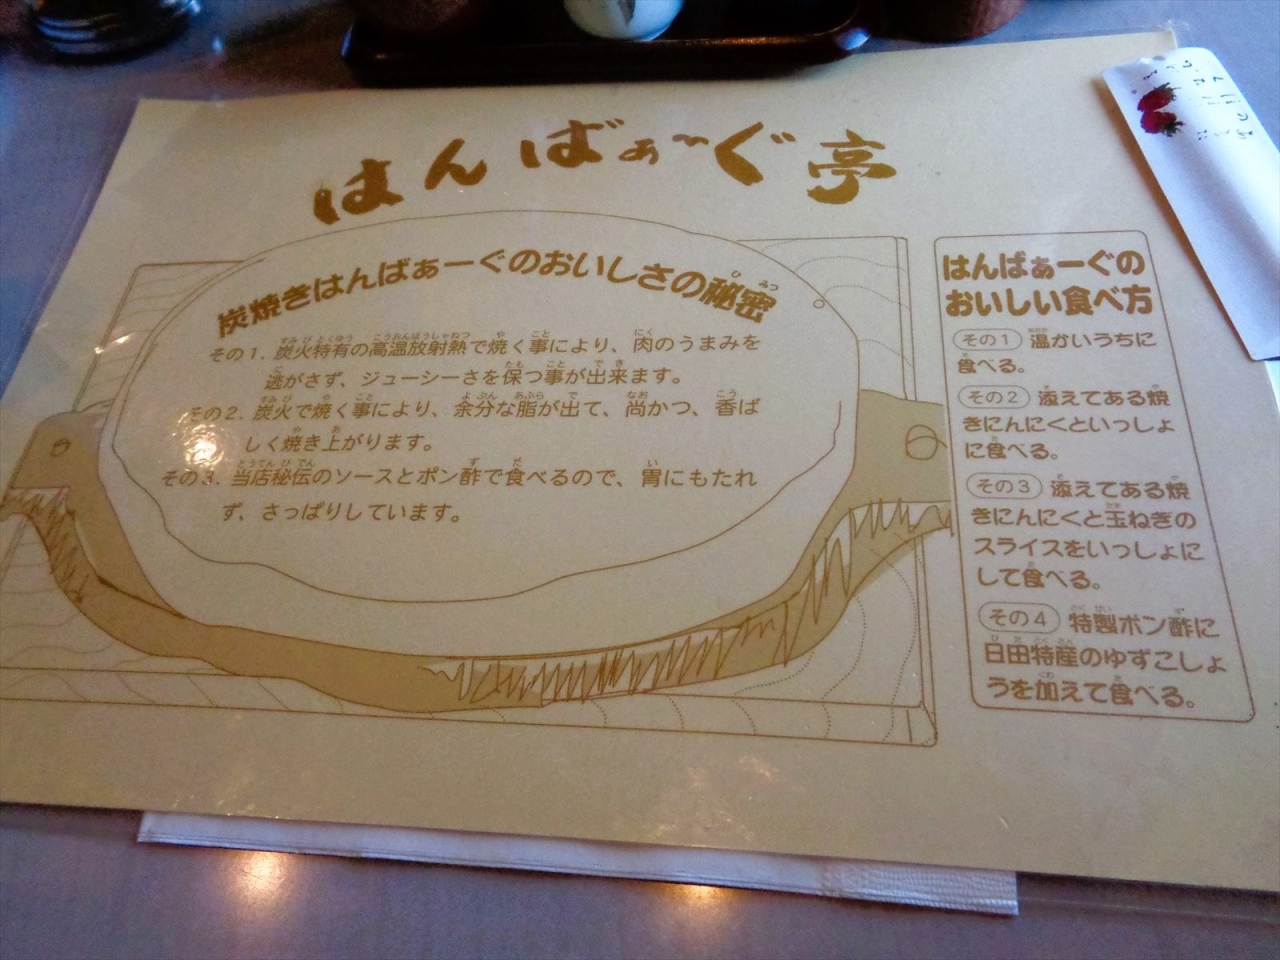 はんばぁ～ぐ亭
炭焼きはんばぁーぐのおいしさの秘密
その1. 炭火特有の高温放射熱で焼く事により、肉のうまみを
逃がさず、ジューシーさを保つ事が出来ます。
その2. 炭火で焼く事により、余分な脂が出て、尚かつ、香ば
しく焼き上がります。
その3. 当店秘伝のソースとポン酢で食べるので、胃にもたれ
ず、さっぱりしています。
はんばぁーぐの
おいしい食べ方
その1 温かいうちに
食べる。
その2 添えてある焼
きにんにくといっしょ
に食べる。
その3 添えてある焼
きにんにくと玉ねぎの
スライスをいっしょに
して食べる。
その4 特製ポン酢に
日田特産のゆずこしょ
うを加えて食べる。